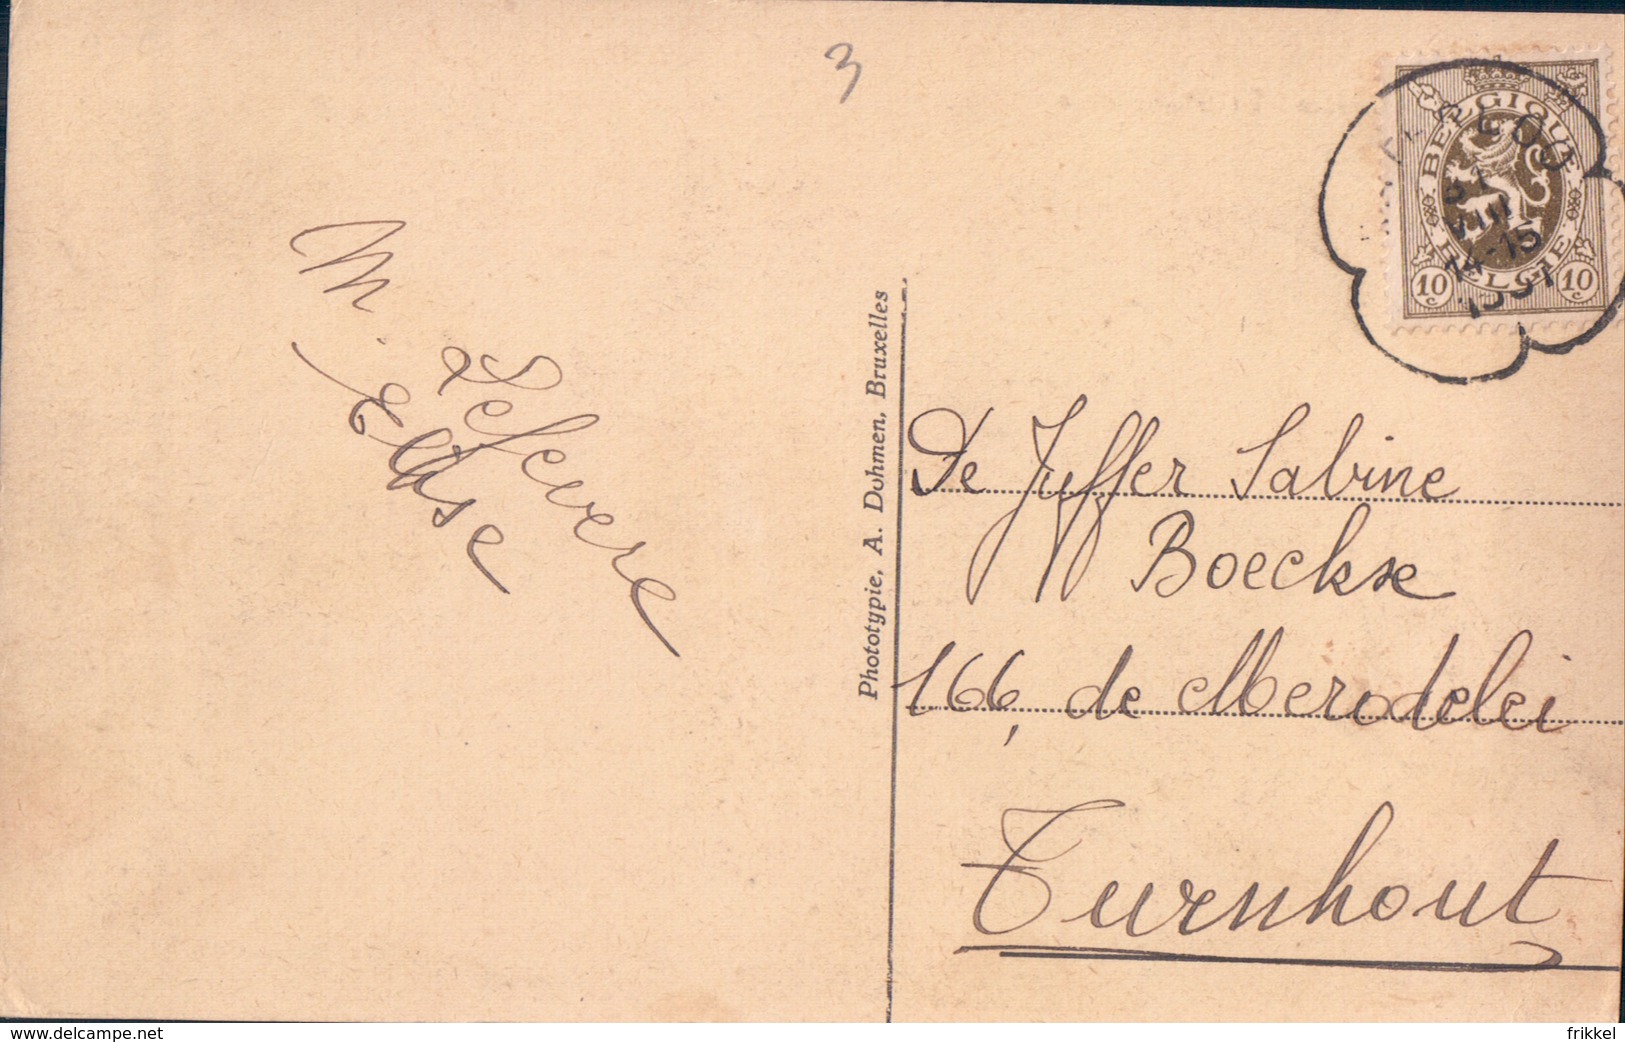 3
M. Lefevere
Elise
Phototypie, A. Dohmen, Bruxelles
BELGIQUE
BELGIË
10 c
10 c
31
VIII
14-15
1931
De Juffer Sabine
Boeckx
166, de Merodelei
Turnhout
www.delcampe.net
frikkel